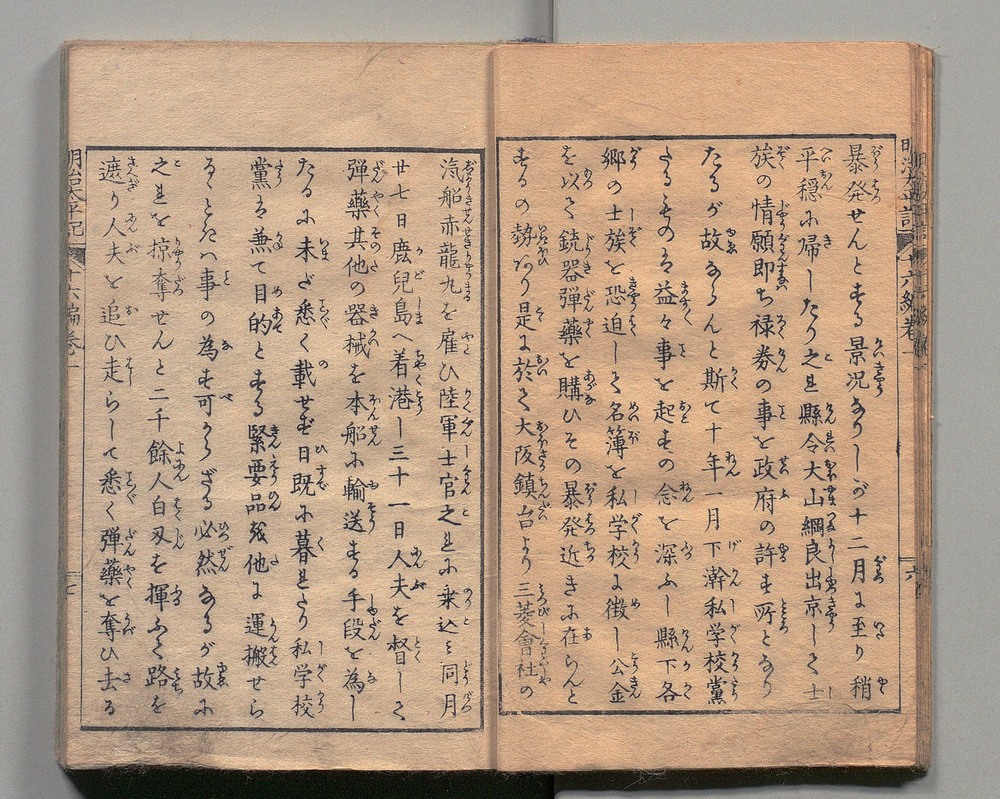 暴発せんとする景况なりしが十二月に至り稍
平穏に帰したり之れ縣令大山綱良出京して士
族の情願即ち禄券の事を政府の許す所となり
たるが故ならんと斯て十年一月下澣私学校黨
たるものは益々事を起すの念を深ふし縣下各
郷の士族を恐迫して名簿を私学校に徴し公金
を以て銃器弾藥を購ひその暴発近きに在らんと
するの勢なり是に於て大阪鎮台より三菱會社の
汽船赤龍九を雇ひ陸軍士官之れに乗込み同月
廿七日鹿兒島へ着港し三十一日人夫を督して
弾藥其他の器械を本船に輸送する手段を為し
たるに未だ悉く載せず日既に暮れたり私学校
黨は兼て目的とする緊要品を他に運搬せら
るゝときハ事の為す可からざる必然なるが故に
之れを掠奪せんと二千餘人白刄を揮ふて路を
遮り人夫を追ひ走らして悉く弾藥を奪ひ去る
明治太平記 十六編巻一 七